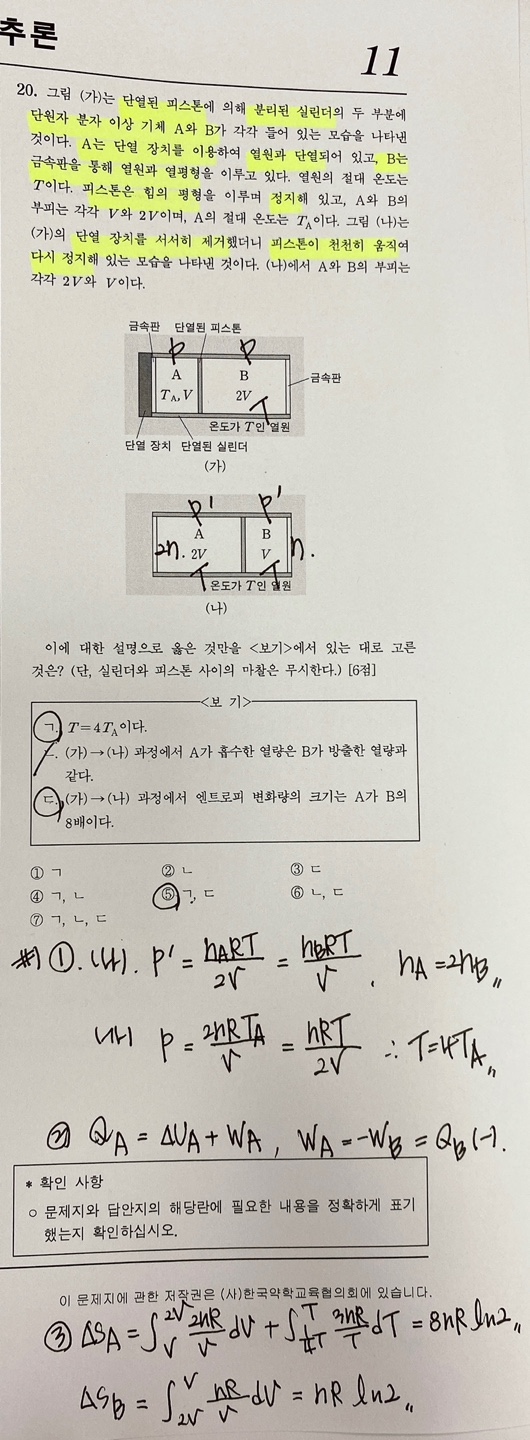 추론
11
20. 그림 (가)는 단열된 피스톤에 의해 분리된 실린더의 두 부분에
단원자 분자 이상 기체 A와 B가 각각 들어 있는 모습을 나타낸
것이다. A는 단열 장치를 이용하여 열원과 단열되어 있고, B는
금속판을 통해 열원과 열평형을 이루고 있다. 열원의 절대 온도는
T이다. 피스톤은 힘의 평형을 이루며 정지해 있고, A와 B의
부피는 각각 V와 2V이며, A의 절대 온도는 T_A이다. 그림 (나)는
(가)의 단열 장치를 서서히 제거했더니 피스톤이 천천히 움직여
다시 정지해 있는 모습을 나타낸 것이다. (나)에서 A와 B의 부피는
각각 2V와 V이다.
금속판 단열된 피스톤
P P
A B
T_A, V 2V
T
금속판
온도가 T인 열원
단열 장치 단열된 실린더
(가)
P' P'
A B
2n. 2V V n.
T T
온도가 T인 열원
(나)
이에 대한 설명으로 옳은 것만을 <보기>에서 있는 대로 고른
것은? (단, 실린더와 피스톤 사이의 마찰은 무시한다.) [6점]
<보 기>
ㄱ. T=4T_A이다.
ㄴ. (가)→(나) 과정에서 A가 흡수한 열량은 B가 방출한 열량과
같다.
ㄷ. (가)→(나) 과정에서 엔트로피 변화량의 크기는 A가 B의
8배이다.
① ㄱ ② ㄴ ③ ㄷ
④ ㄱ, ㄴ ⑤ ㄱ, ㄷ ⑥ ㄴ, ㄷ
⑦ ㄱ, ㄴ, ㄷ
#1 ①. (나). P' = n_ART/2V = n_BRT/V , n_A = 2n_B〃
P = 2nRT_A/V = nRT/2V ∴ T=4T_A〃
② Q_A = ΔU_A + W_A , W_A = -W_B = Q_B (-).
* 확인 사항
○ 문제지와 답안지의 해당란에 필요한 내용을 정확하게 표기
했는지 확인하십시오.
이 문제지에 관한 저작권은 (사)한국약학교육협의회에 있습니다.
③ ΔS_A = ∫_V^2V 2nR/V dV + ∫_¼T^T 3nR/T dT = 8nR ln2〃
ΔS_B = ∫_2V^V nR/V dV = nR ln2〃